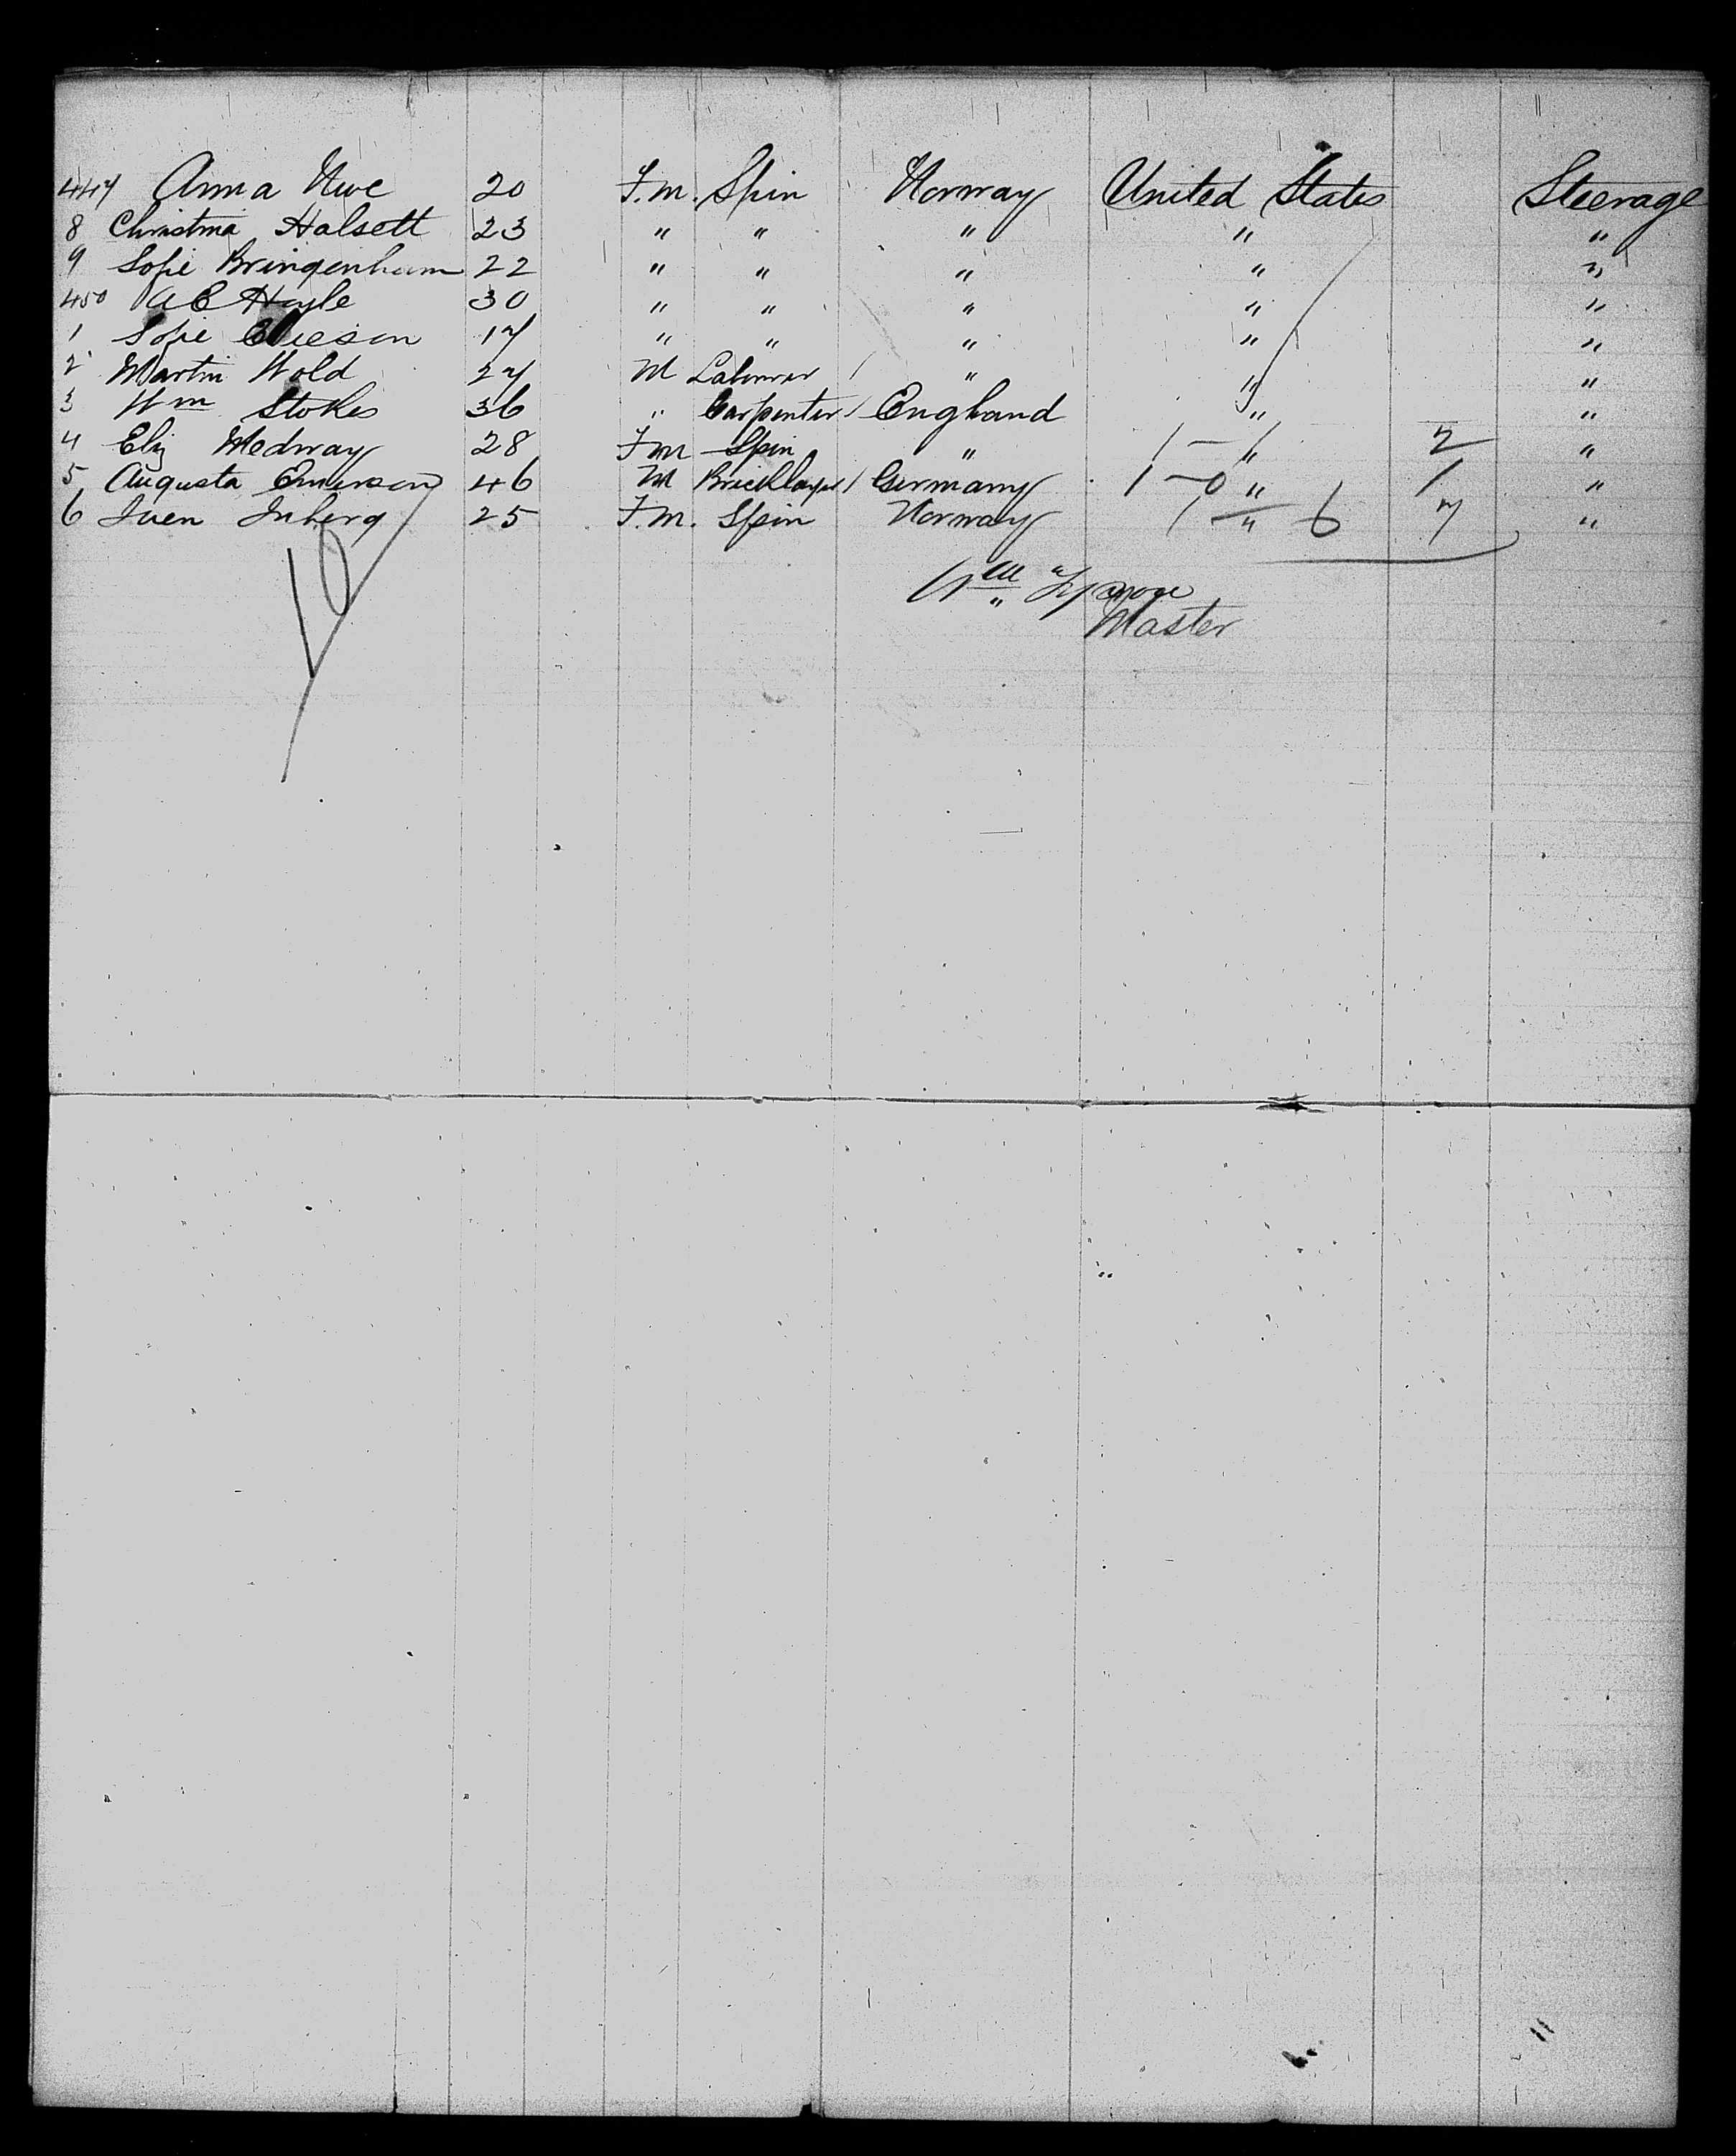 447 Anna Nive 20 F.M. Spin Norway United States Steerage
8 Christina Halsett 23 " " " " "
9 Sofie Bringenham 22 " " " " "
450 A E Hoyle 30 " " " " "
1 Sofie Elieson 17 " " " " "
2 Martin Wold 27 M Labourer / " " "
3 Wm Stokes 36 " Carpenter / England " "
4 Eliz Medway 28 F M Spin " 1 - 1 " 2 "
5 Augusta Emerson 46 M Bricklayer / Germany 1 - 0 " 1 "
6 Iven Inberg 25 F.M. Spin Norway 1 - " 6 7 "
10
Master